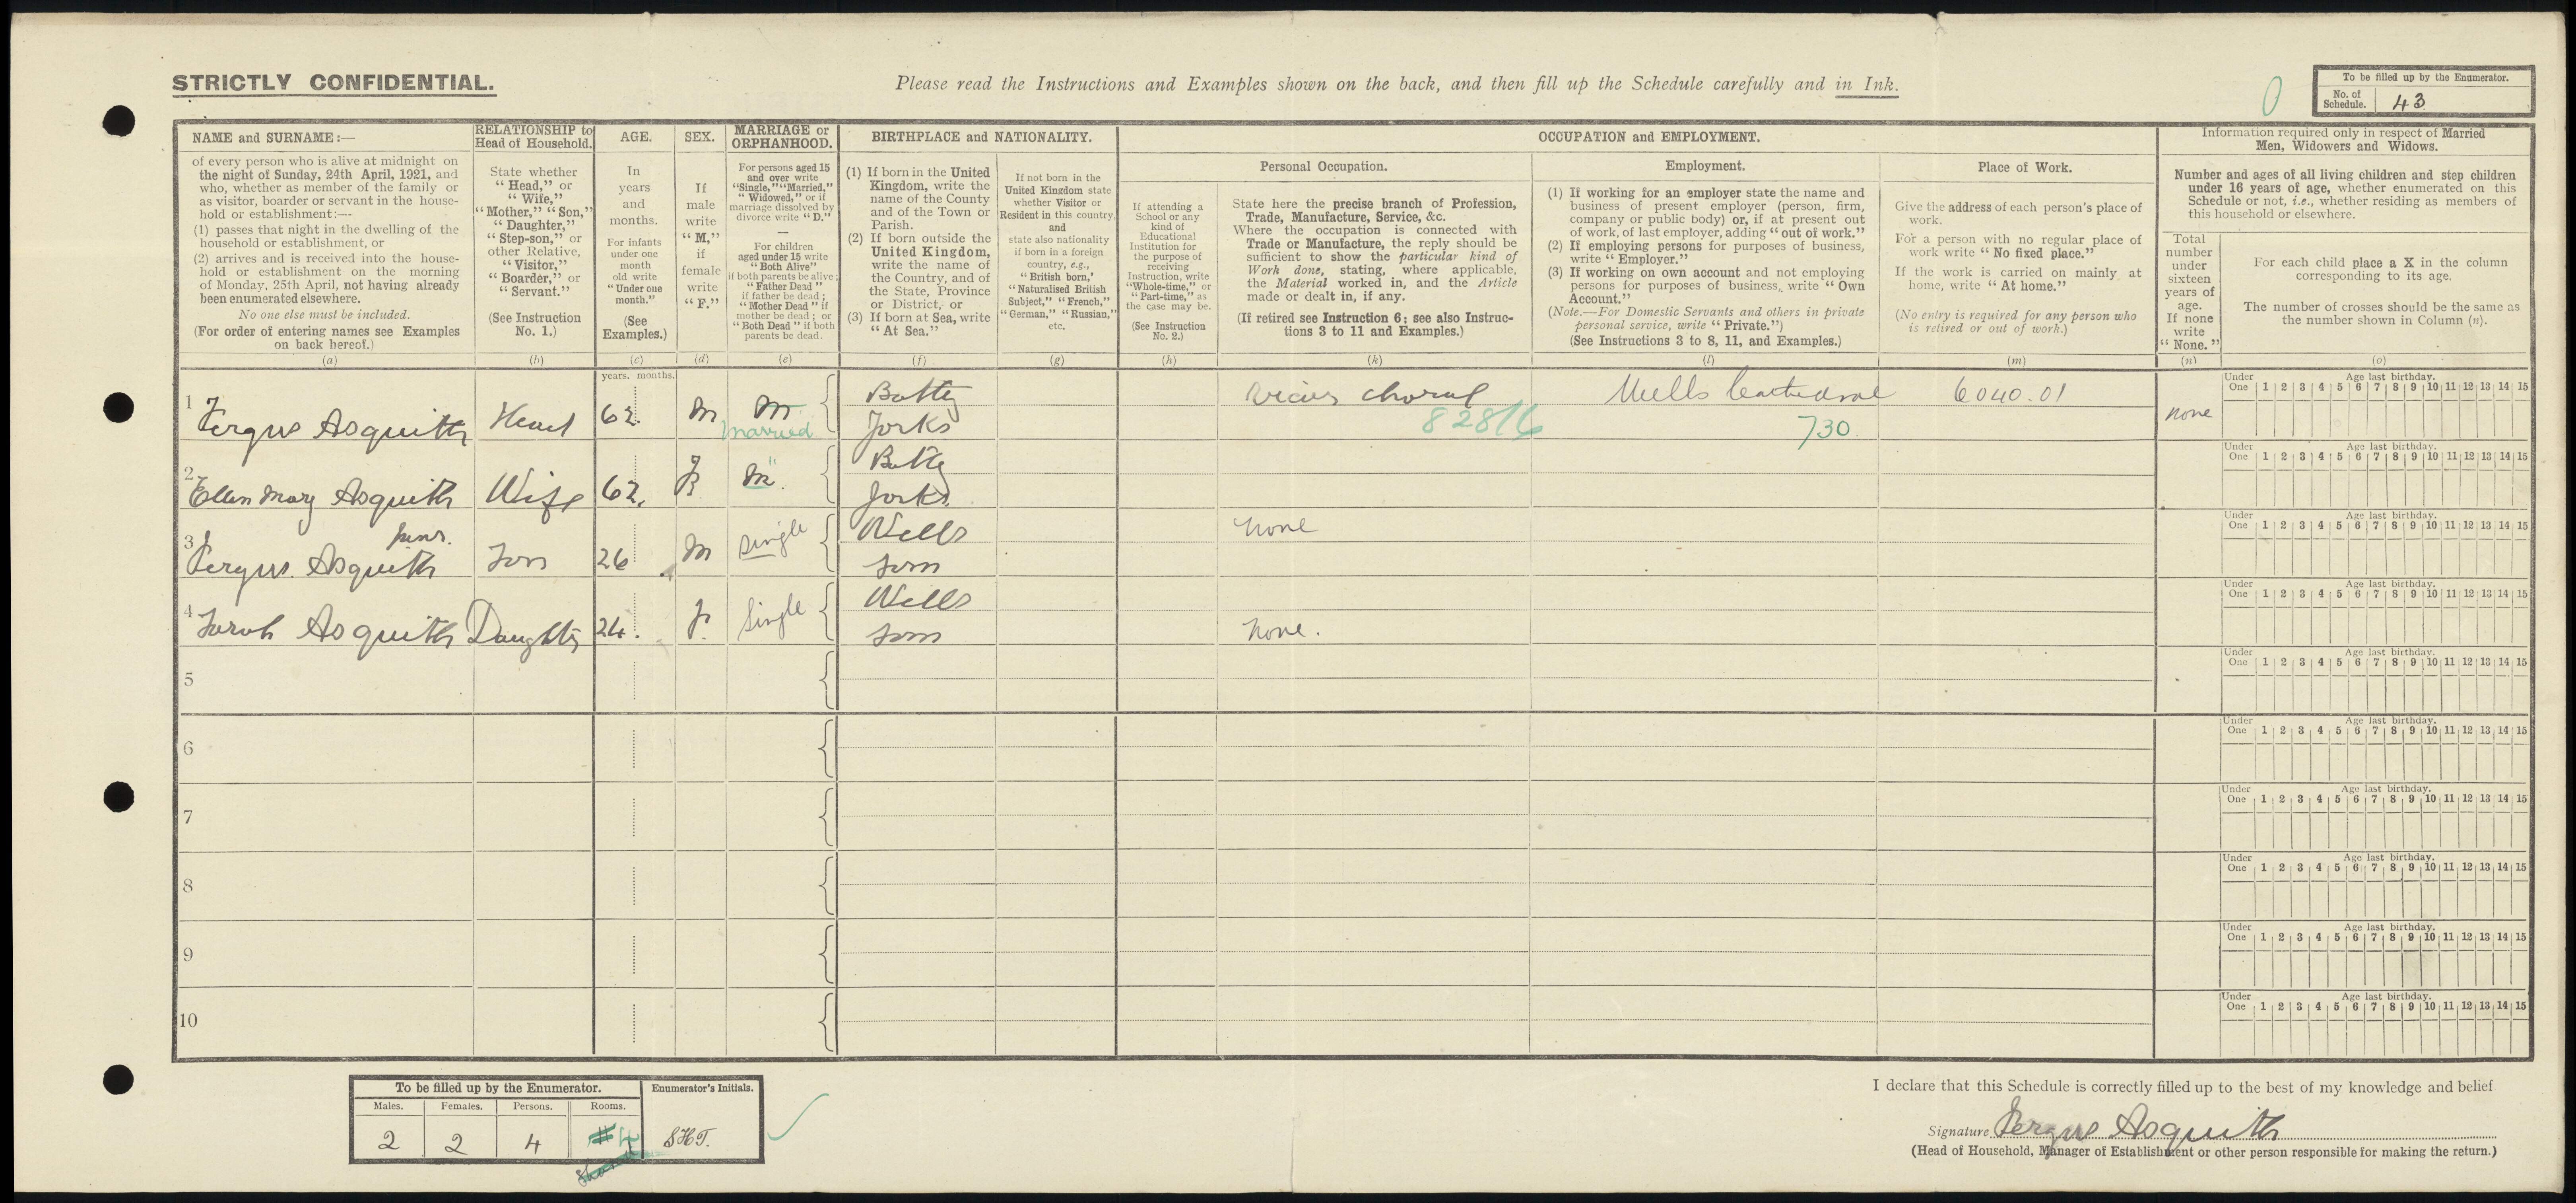 STRICTLY CONFIDENTIAL.
Please read the Instructions and Examples shown on the back, and then fill up the Schedule carefully and in Ink.
0
To be filled up by the Enumerator.
No. of Schedule. 43
NAME and SURNAME:—
of every person who is alive at midnight on
the night of Sunday, 24th April, 1921, and
who, whether as member of the family or
as visitor, boarder or servant in the house-
hold or establishment:—
(1) passes that night in the dwelling of the
household or establishment, or
(2) arrives and is received into the house-
hold or establishment on the morning
of Monday, 25th April, not having already
been enumerated elsewhere.
No one else must be included.
(For order of entering names see Examples
on back hereof.)
(a)
RELATIONSHIP to
Head of Household.
State whether
"Head," or
"Wife,"
"Mother," "Son,"
"Daughter,"
"Step-son," or
other Relative,
"Visitor,"
"Boarder," or
"Servant."
(See Instruction
No. 1.)
(b)
AGE.
In
years
and
months.
For infants
under one
month
old write
"Under one
month."
(See
Examples.)
(c)
SEX.
If
male
write
"M,"
if
female
write
"F."
(d)
MARRIAGE or
ORPHANHOOD.
For persons aged 15
and over write
"Single," "Married,"
"Widowed," or if
marriage dissolved by
divorce write "D."
—
For children
aged under 15 write
"Both Alive"
if both parents be alive;
"Father Dead"
if father be dead;
"Mother Dead" if
mother be dead; or
"Both Dead" if both
parents be dead.
(e)
BIRTHPLACE and NATIONALITY.
(1) If born in the United
Kingdom, write the
name of the County
and of the Town or
Parish.
(2) If born outside the
United Kingdom,
write the name of
the Country, and of
the State, Province
or District, or
(3) If born at Sea, write
"At Sea."
(f)
If not born in the
United Kingdom state
whether Visitor or
Resident in this country,
and
state also nationality
if born in a foreign
country, e.g.,
"British born,"
"Naturalised British
Subject," "French,"
"German," "Russian,"
etc.
(g)
OCCUPATION and EMPLOYMENT.
If attending a
School or any
kind of
Educational
Institution for
the purpose of
receiving
Instruction, write
"Whole-time," or
"Part-time," as
the case may be.
(See Instruction
No. 2.)
(h)
Personal Occupation.
State here the precise branch of Profession,
Trade, Manufacture, Service, &c.
Where the occupation is connected with
Trade or Manufacture, the reply should be
sufficient to show the particular kind of
Work done, stating, where applicable,
the Material worked in, and the Article
made or dealt in, if any.
(If retired see Instruction 6; see also Instruc-
tions 3 to 11 and Examples.)
(k)
Employment.
(1) If working for an employer state the name and
business of present employer (person, firm,
company or public body) or, if at present out
of work, of last employer, adding "out of work."
(2) If employing persons for purposes of business,
write "Employer."
(3) If working on own account and not employing
persons for purposes of business, write "Own
Account."
(Note.—For Domestic Servants and others in private
personal service, write "Private.")
(See Instructions 3 to 8, 11, and Examples.)
(l)
Place of Work.
Give the address of each person's place of
work.
For a person with no regular place of
work write "No fixed place."
If the work is carried on mainly at
home, write "At home."
(No entry is required for any person who
is retired or out of work.)
(m)
Information required only in respect of Married
Men, Widowers and Widows.
Number and ages of all living children and step children
under 16 years of age, whether enumerated on this
Schedule or not, i.e., whether residing as members of
this household or elsewhere.
Total
number
under
sixteen
years of
age.
If none
write
"None."
(n)
For each child place a X in the column
corresponding to its age.
The number of crosses should be the same as
the number shown in Column (n).
(o)
years. months.
1 Fergus Asquith Head 62 M M Married Batty Yorks Vicar choral 82816 Wells Cathedral 730 6040.01 none
Under One Age last birthday. 1 2 3 4 5 6 7 8 9 10 11 12 13 14 15
2 Ellen Mary Asquith Wife 62. F M " Batty Yorks
Under One Age last birthday. 1 2 3 4 5 6 7 8 9 10 11 12 13 14 15
3 Fergus Asquith junr. Son 26 M Single Wells Som none
Under One Age last birthday. 1 2 3 4 5 6 7 8 9 10 11 12 13 14 15
4 Sarah Asquith Daughter 24. F. Single Wells Som none.
Under One Age last birthday. 1 2 3 4 5 6 7 8 9 10 11 12 13 14 15
5
Under One Age last birthday. 1 2 3 4 5 6 7 8 9 10 11 12 13 14 15
6
Under One Age last birthday. 1 2 3 4 5 6 7 8 9 10 11 12 13 14 15
7
Under One Age last birthday. 1 2 3 4 5 6 7 8 9 10 11 12 13 14 15
8
Under One Age last birthday. 1 2 3 4 5 6 7 8 9 10 11 12 13 14 15
9
Under One Age last birthday. 1 2 3 4 5 6 7 8 9 10 11 12 13 14 15
10
Under One Age last birthday. 1 2 3 4 5 6 7 8 9 10 11 12 13 14 15
To be filled up by the Enumerator.
Males. Females. Persons. Rooms.
2 2 4
Enumerator's Initials.
SHT.
I declare that this Schedule is correctly filled up to the best of my knowledge and belief
Signature Fergus Asquith
(Head of Household, Manager of Establishment or other person responsible for making the return.)